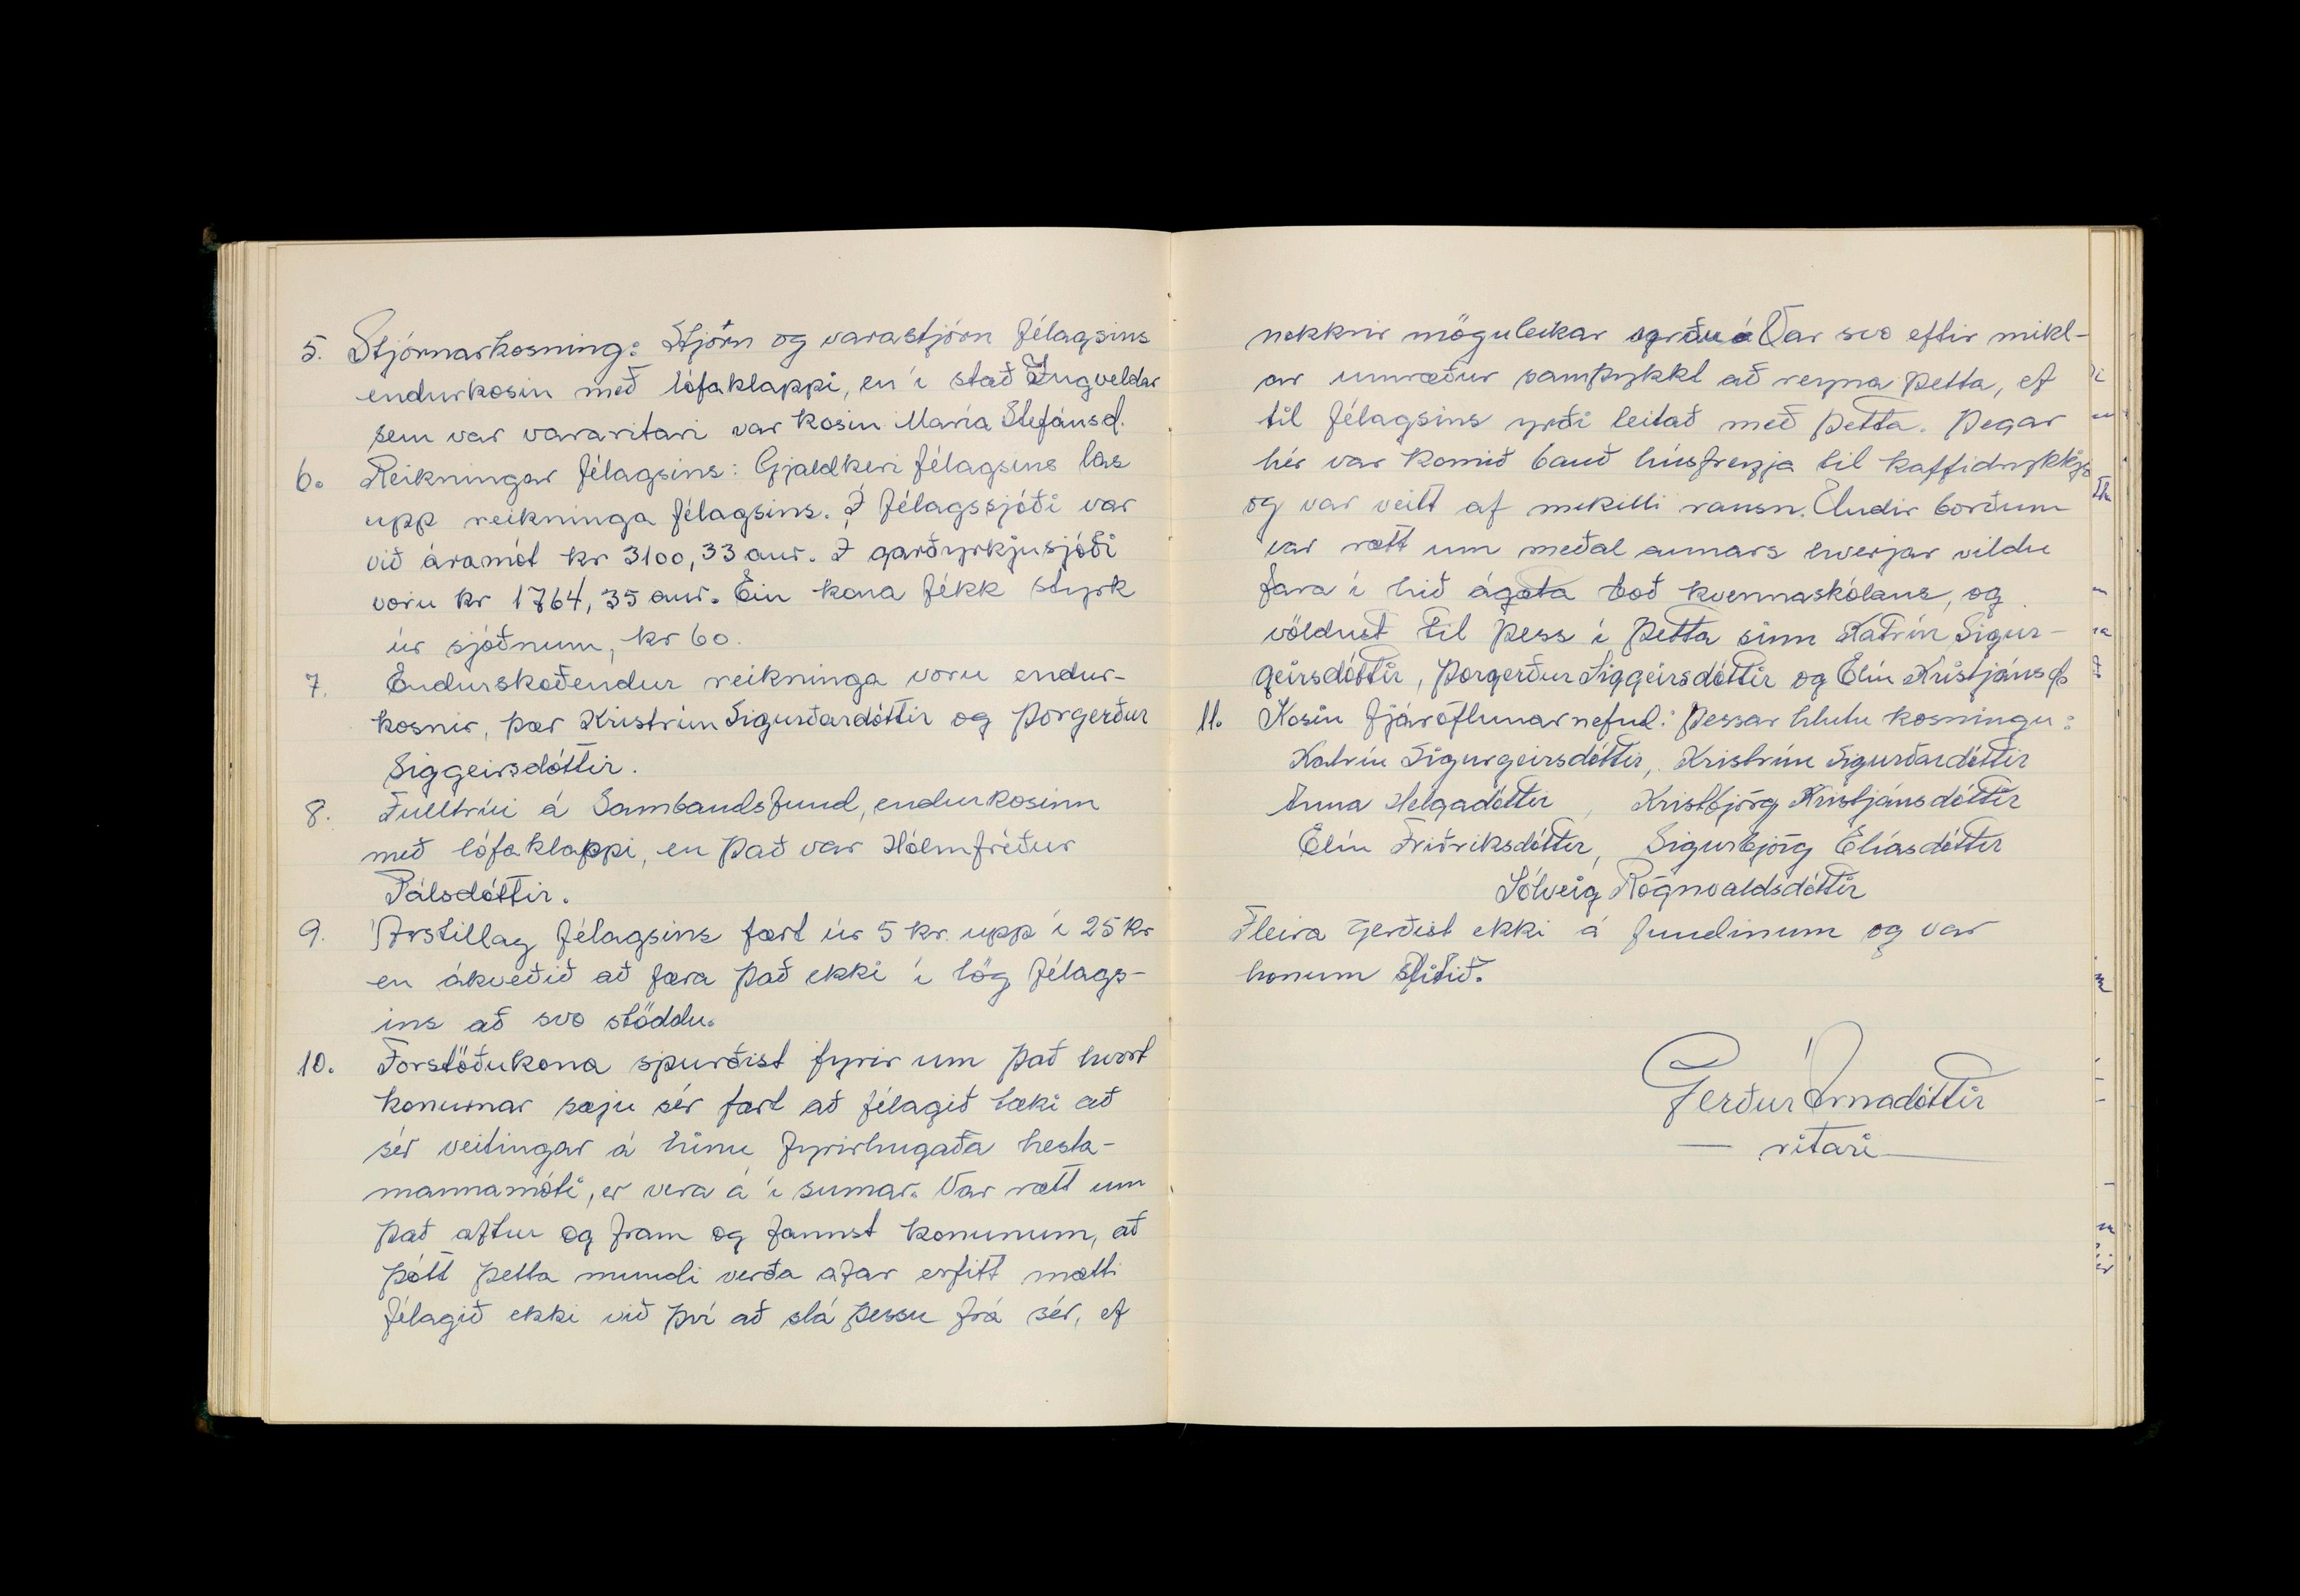 5. Stjórnarkosning: Stjórn og varastjórn félagsins
endurkosin með lófaklappi, en í stað Ingveldar
sem var vararitari var kosin María Stefánsd.
6. Reikningar félagsins: Gjaldkeri félagsins las
upp reikninga félagsins. Í félagssjóði var
við áramót kr 3100,33 aur. Í garðyrkjusjóði
voru kr 1764,35 aur. Ein kona fékk styrk
úr sjóðnum, kr 60.
7. Endurskoðendur reikninga voru endur-
kosnir, þær Kristrún Sigurðardóttir og Þorgerður
Siggeirsdóttir.
8. Fulltrúi á Sambandsfund, endurkosinn
með lófaklappi, en það var Hólmfríður
Pálsdóttir.
9. Árstillag félagsins fært úr 5 kr. upp í 25 kr
en ákveðið að færa það ekki í lög félags-
ins að svo stöddu.
10. Forstöðukona spurðist fyrir um það hvort
konurnar sæju sér fært að félagið tæki að
sér veitingar á hinu fyrirhugaða hesta-
mannamóti, er vera á í sumar. Var rætt um
það aftur og fram og fannst konunum, að
þótt þetta mundi verða afar erfitt mætti
félagið ekki við því að slá þessu frá sér, ef
nokkrir möguleikar Var svo eftir mikl-
ar umræður samþykkt að reyna þetta, ef
til félagsins yrði leitað með þetta. Þegar
hér var komið bauð húsfreyja til kaffidrykkju
og var veitt af mikilli rausn. Undir borðum
var rætt um meðal annars hverjar vildu
fara í hið ágæta boð kvennaskólans, og
völdust til þess í þetta sinn Katrín Sigur-
geirsdóttir, Þorgerður Siggeirsdóttir og Elín Kristjánsd.
11. Kosin fjáröflunarnefnd: Þessar hlutu kosningu:
Katrín Sigurgeirsdóttir, Kristrún Sigurðardóttir
Anna Helgadóttir, Kristbjörg Kristjánsdóttir
Elín Friðriksdóttir, Sigurbjörg Elíasdóttir
Sólveig Rögnvaldsdóttir
Fleira gerðist ekki á fundinum og var
honum slitið.
Gerður Árnadóttir
— ritari —